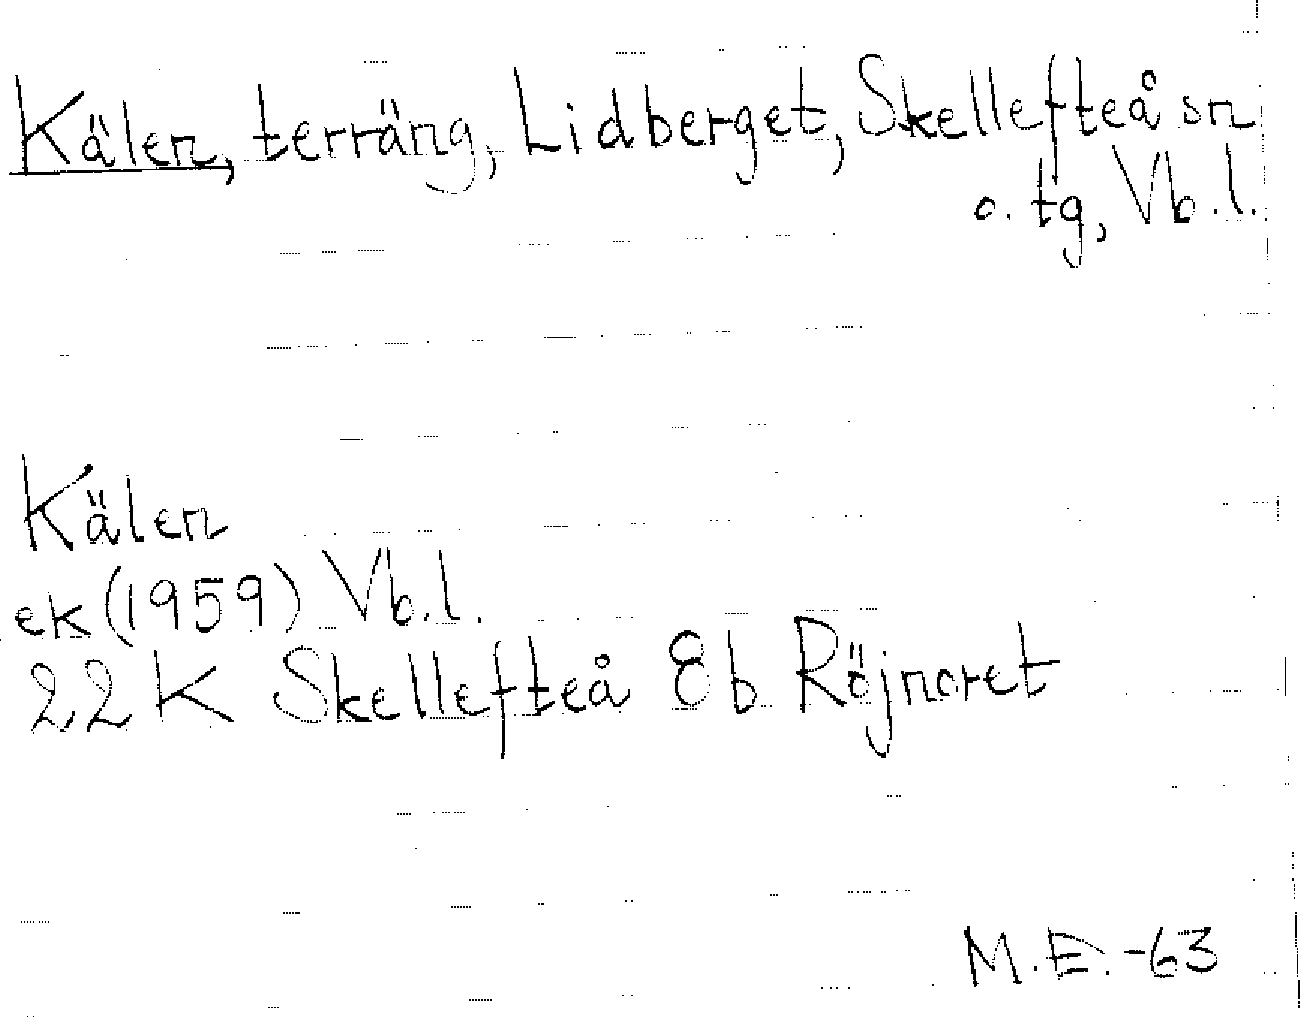 Kälen, terräng, Lidberget, Skellefteå sn
o. tg, Vb. l.
Kälen
ek (1959) Vb. l.
22 K Skellefteå 8 b Röjnoret
M.E. -63